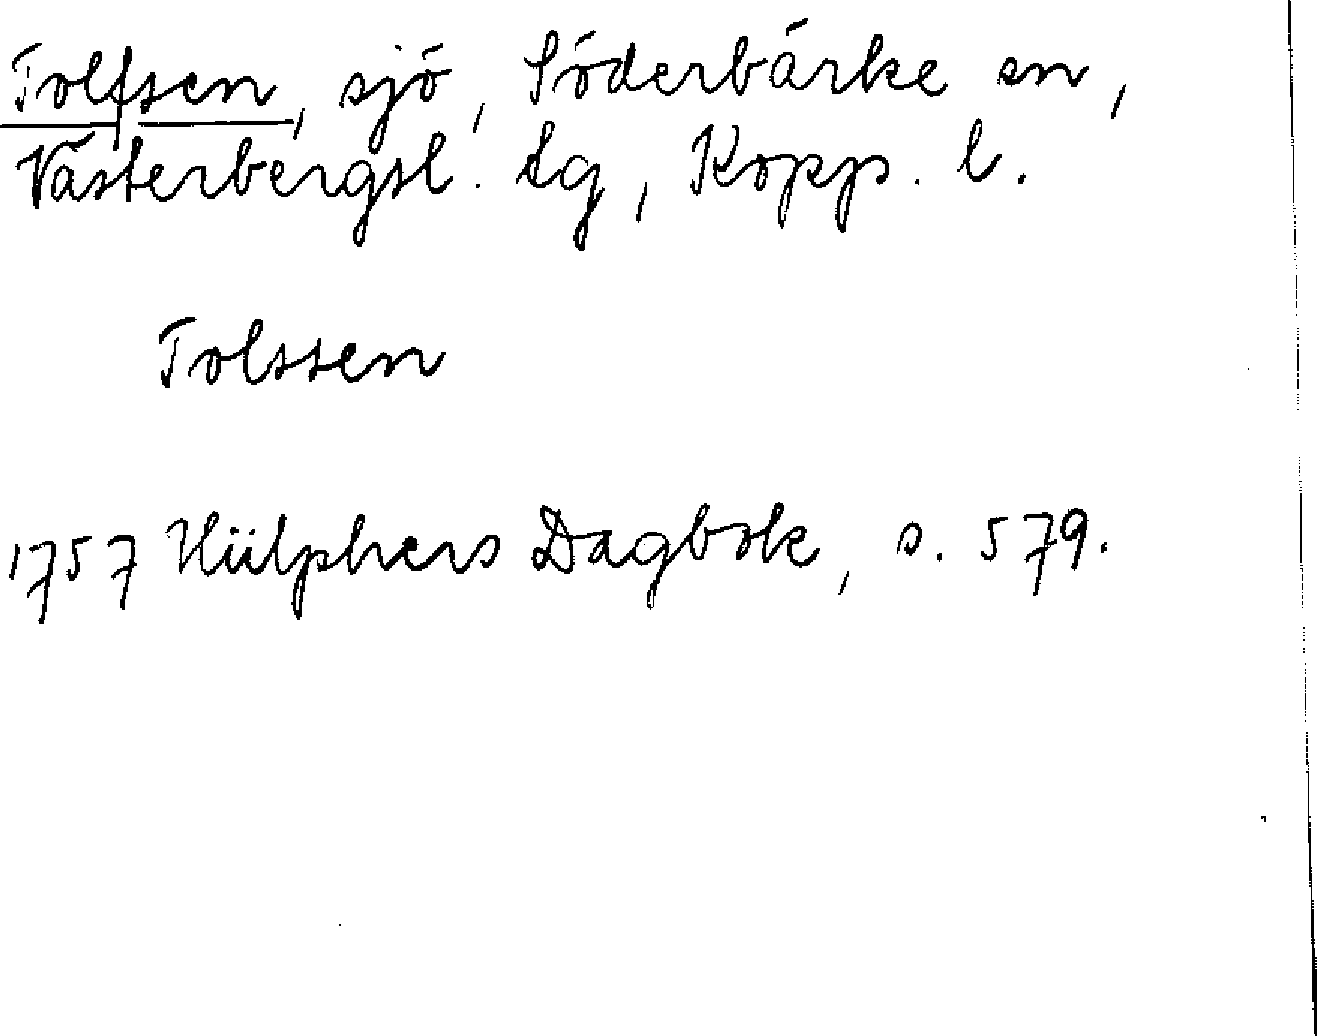 Tolfsen, sjö, Söderbärke sn,
Västerbergsl. dg, Kopp. l.
Tolssen
1757 Hülphers Dagbok, s. 579.